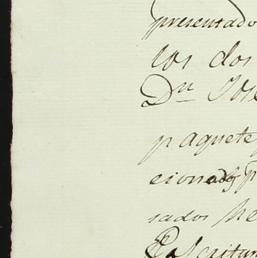 presentado
los dos
Dn José
paquete
cionados p
sados he
Escritur